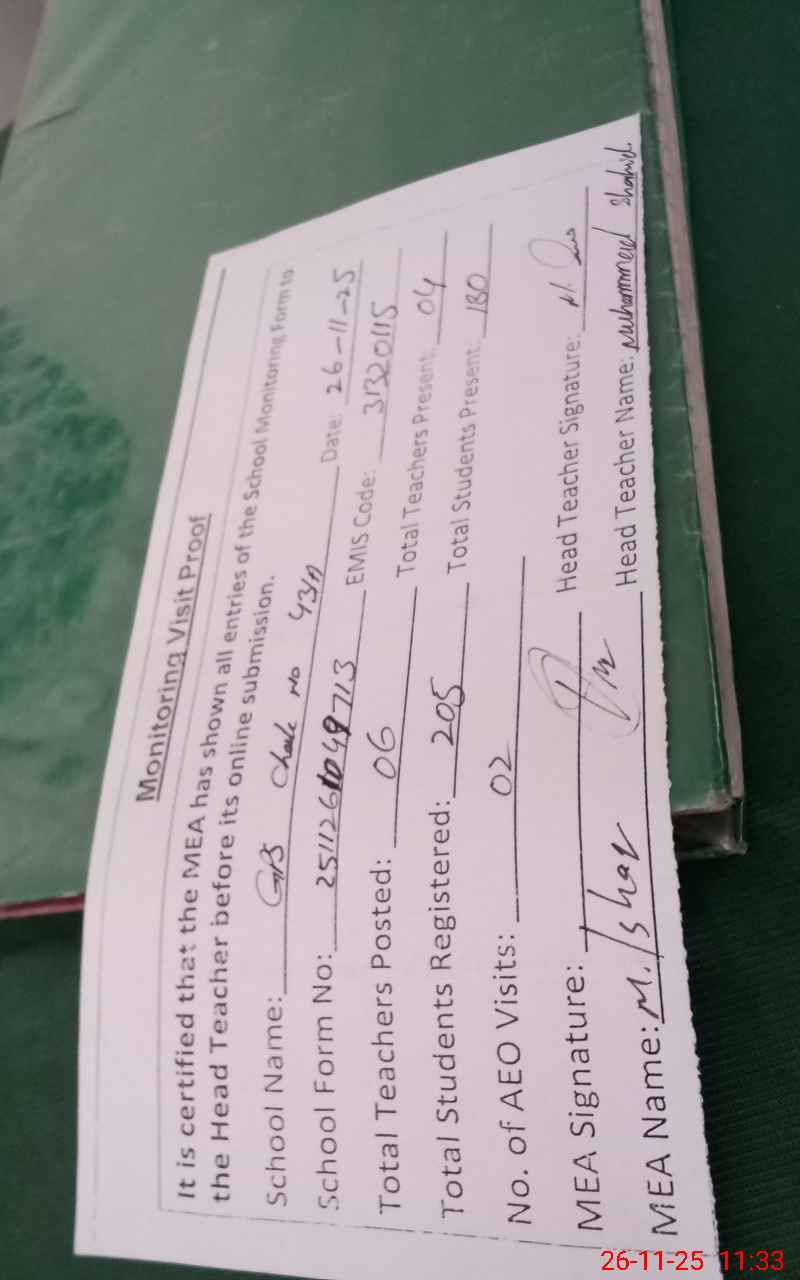 Monitoring Visit Proof
It is certified that the MEA has shown all entries of the School Monitoring Form to
the Head Teacher before its online submission.
School Name: GPS Chak No 43/A Date: 26-11-25
School Form No: EMIS Code: 31320115
Total Teachers Posted: 06 Total Teachers Present: 04
Total Students Registered: 205 Total Students Present: 180
No. of AEO Visits: 02
MEA Signature: Head Teacher Signature:
MEA Name: M. Head Teacher Name: Muhammad Shahid
26-11-25 11:33